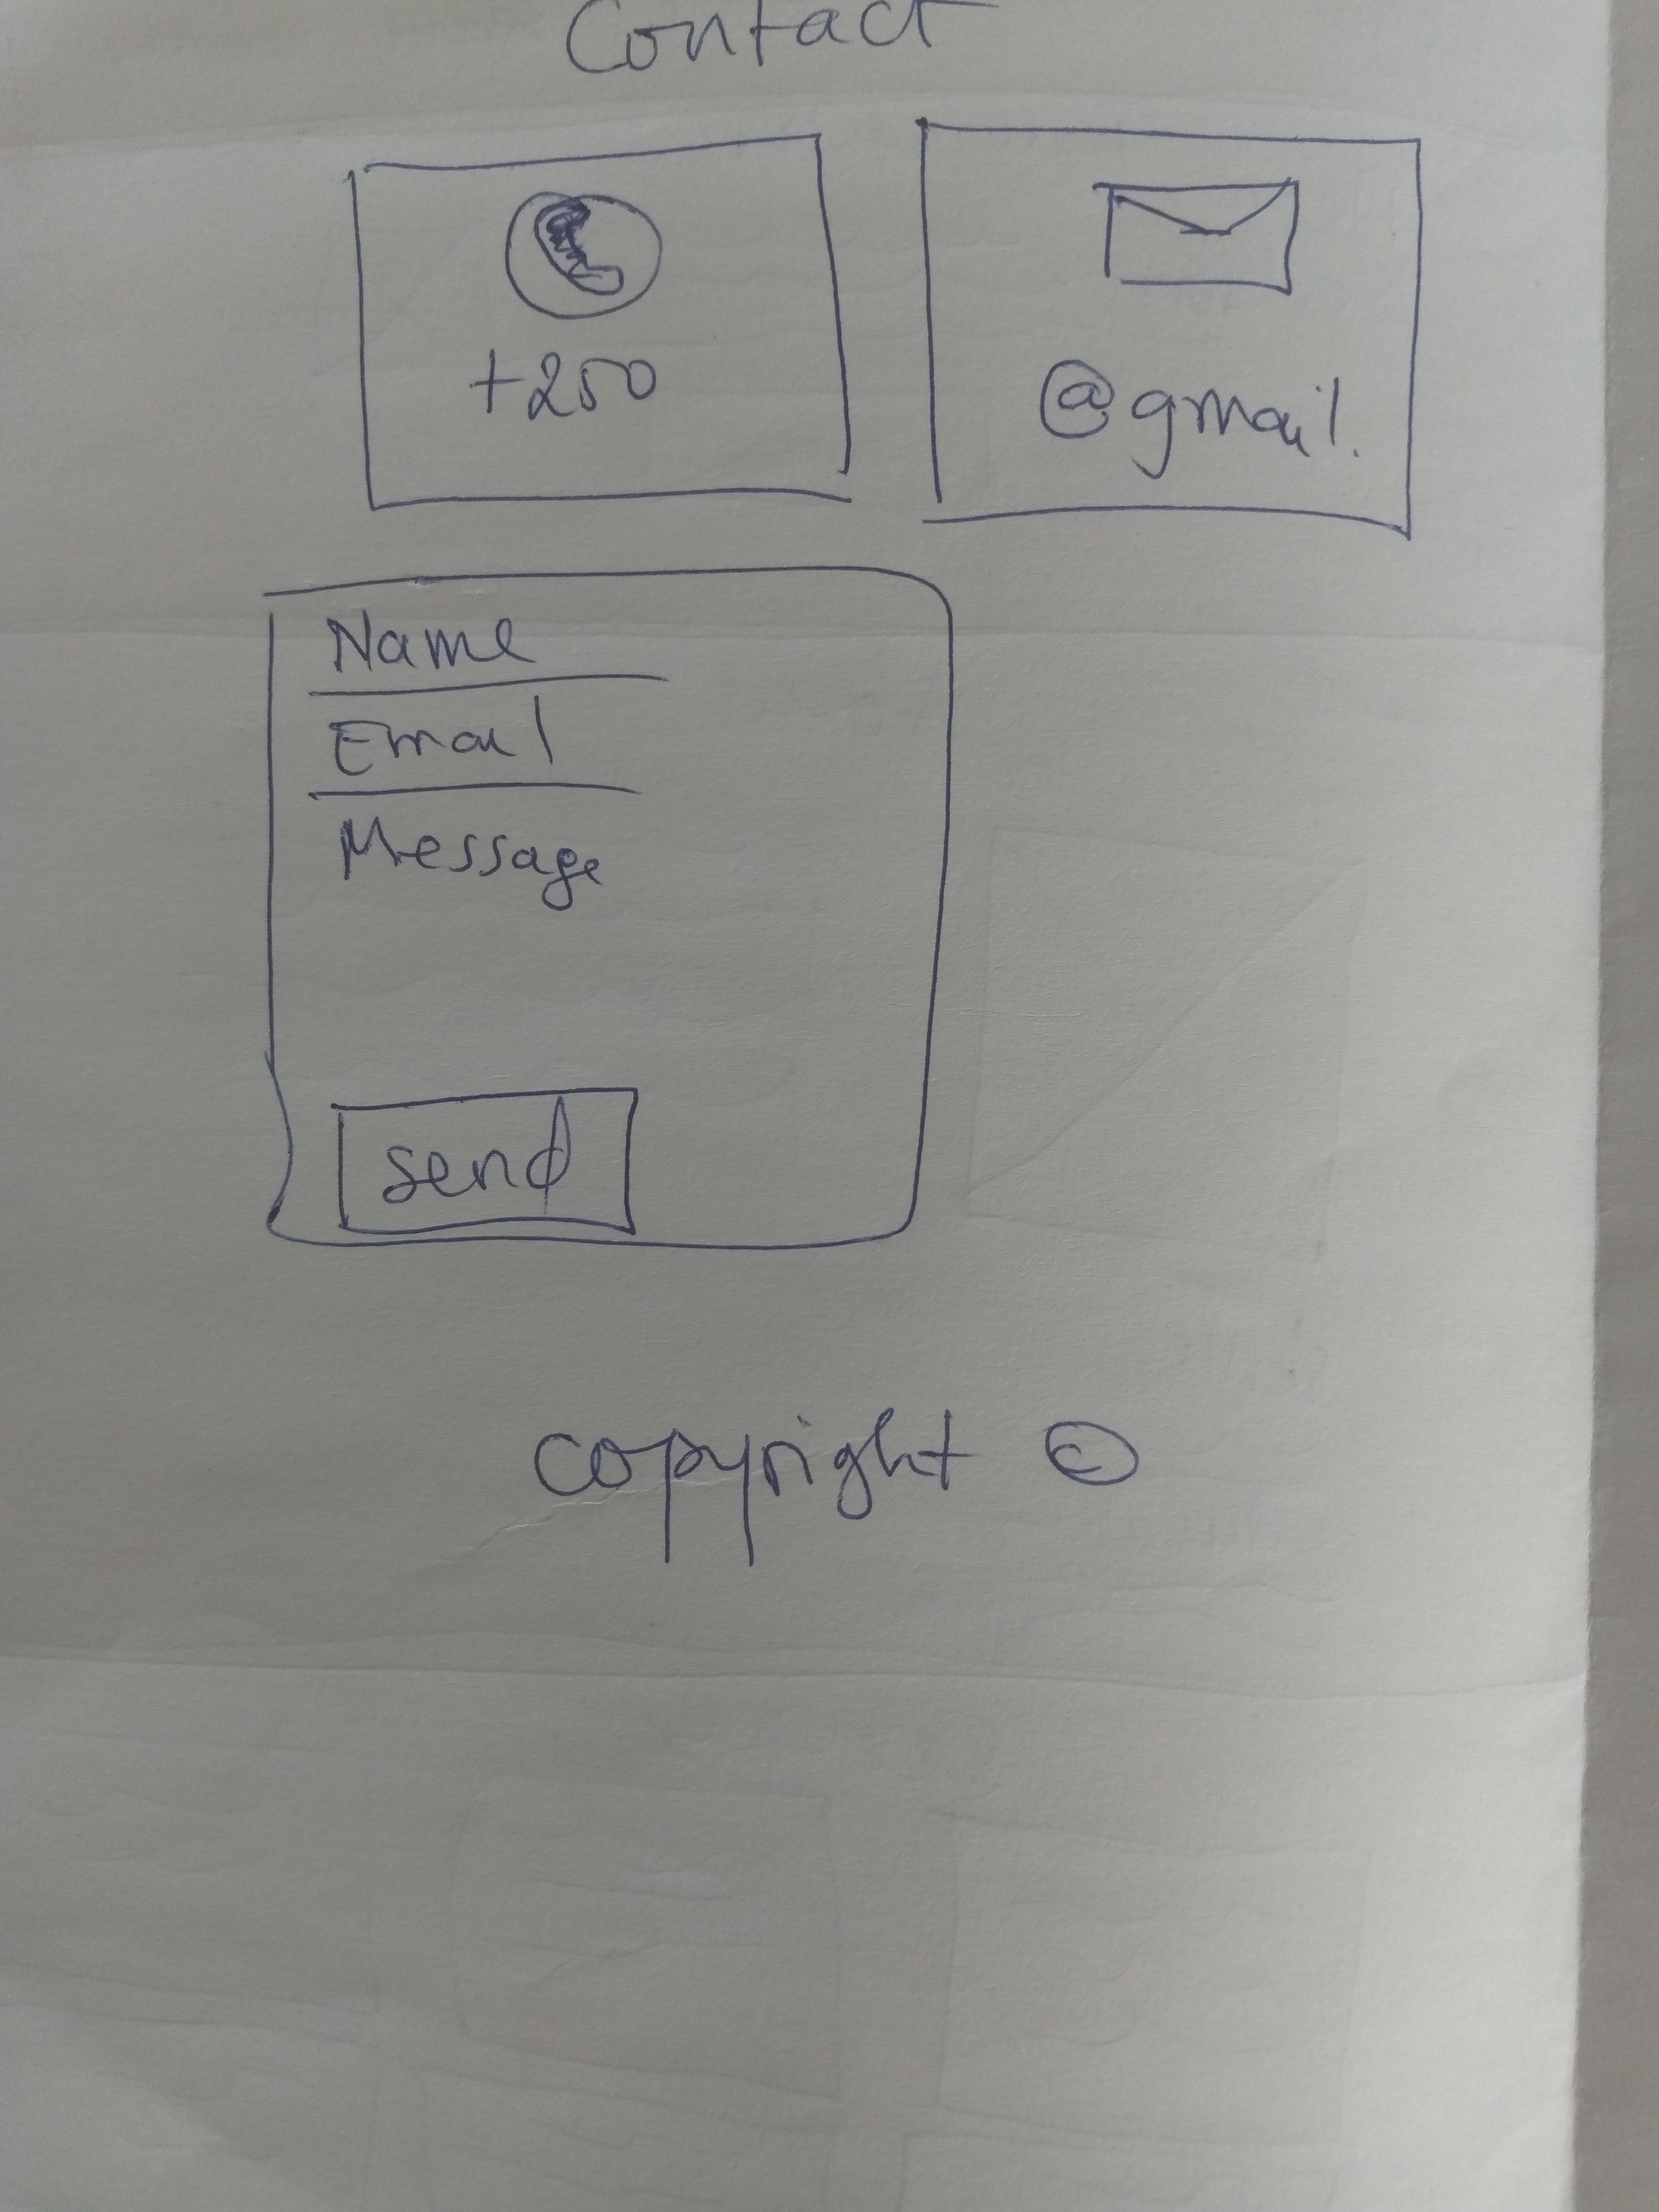 Contact
+250
@gmail.
Name
Email
Message
send
copyright ©